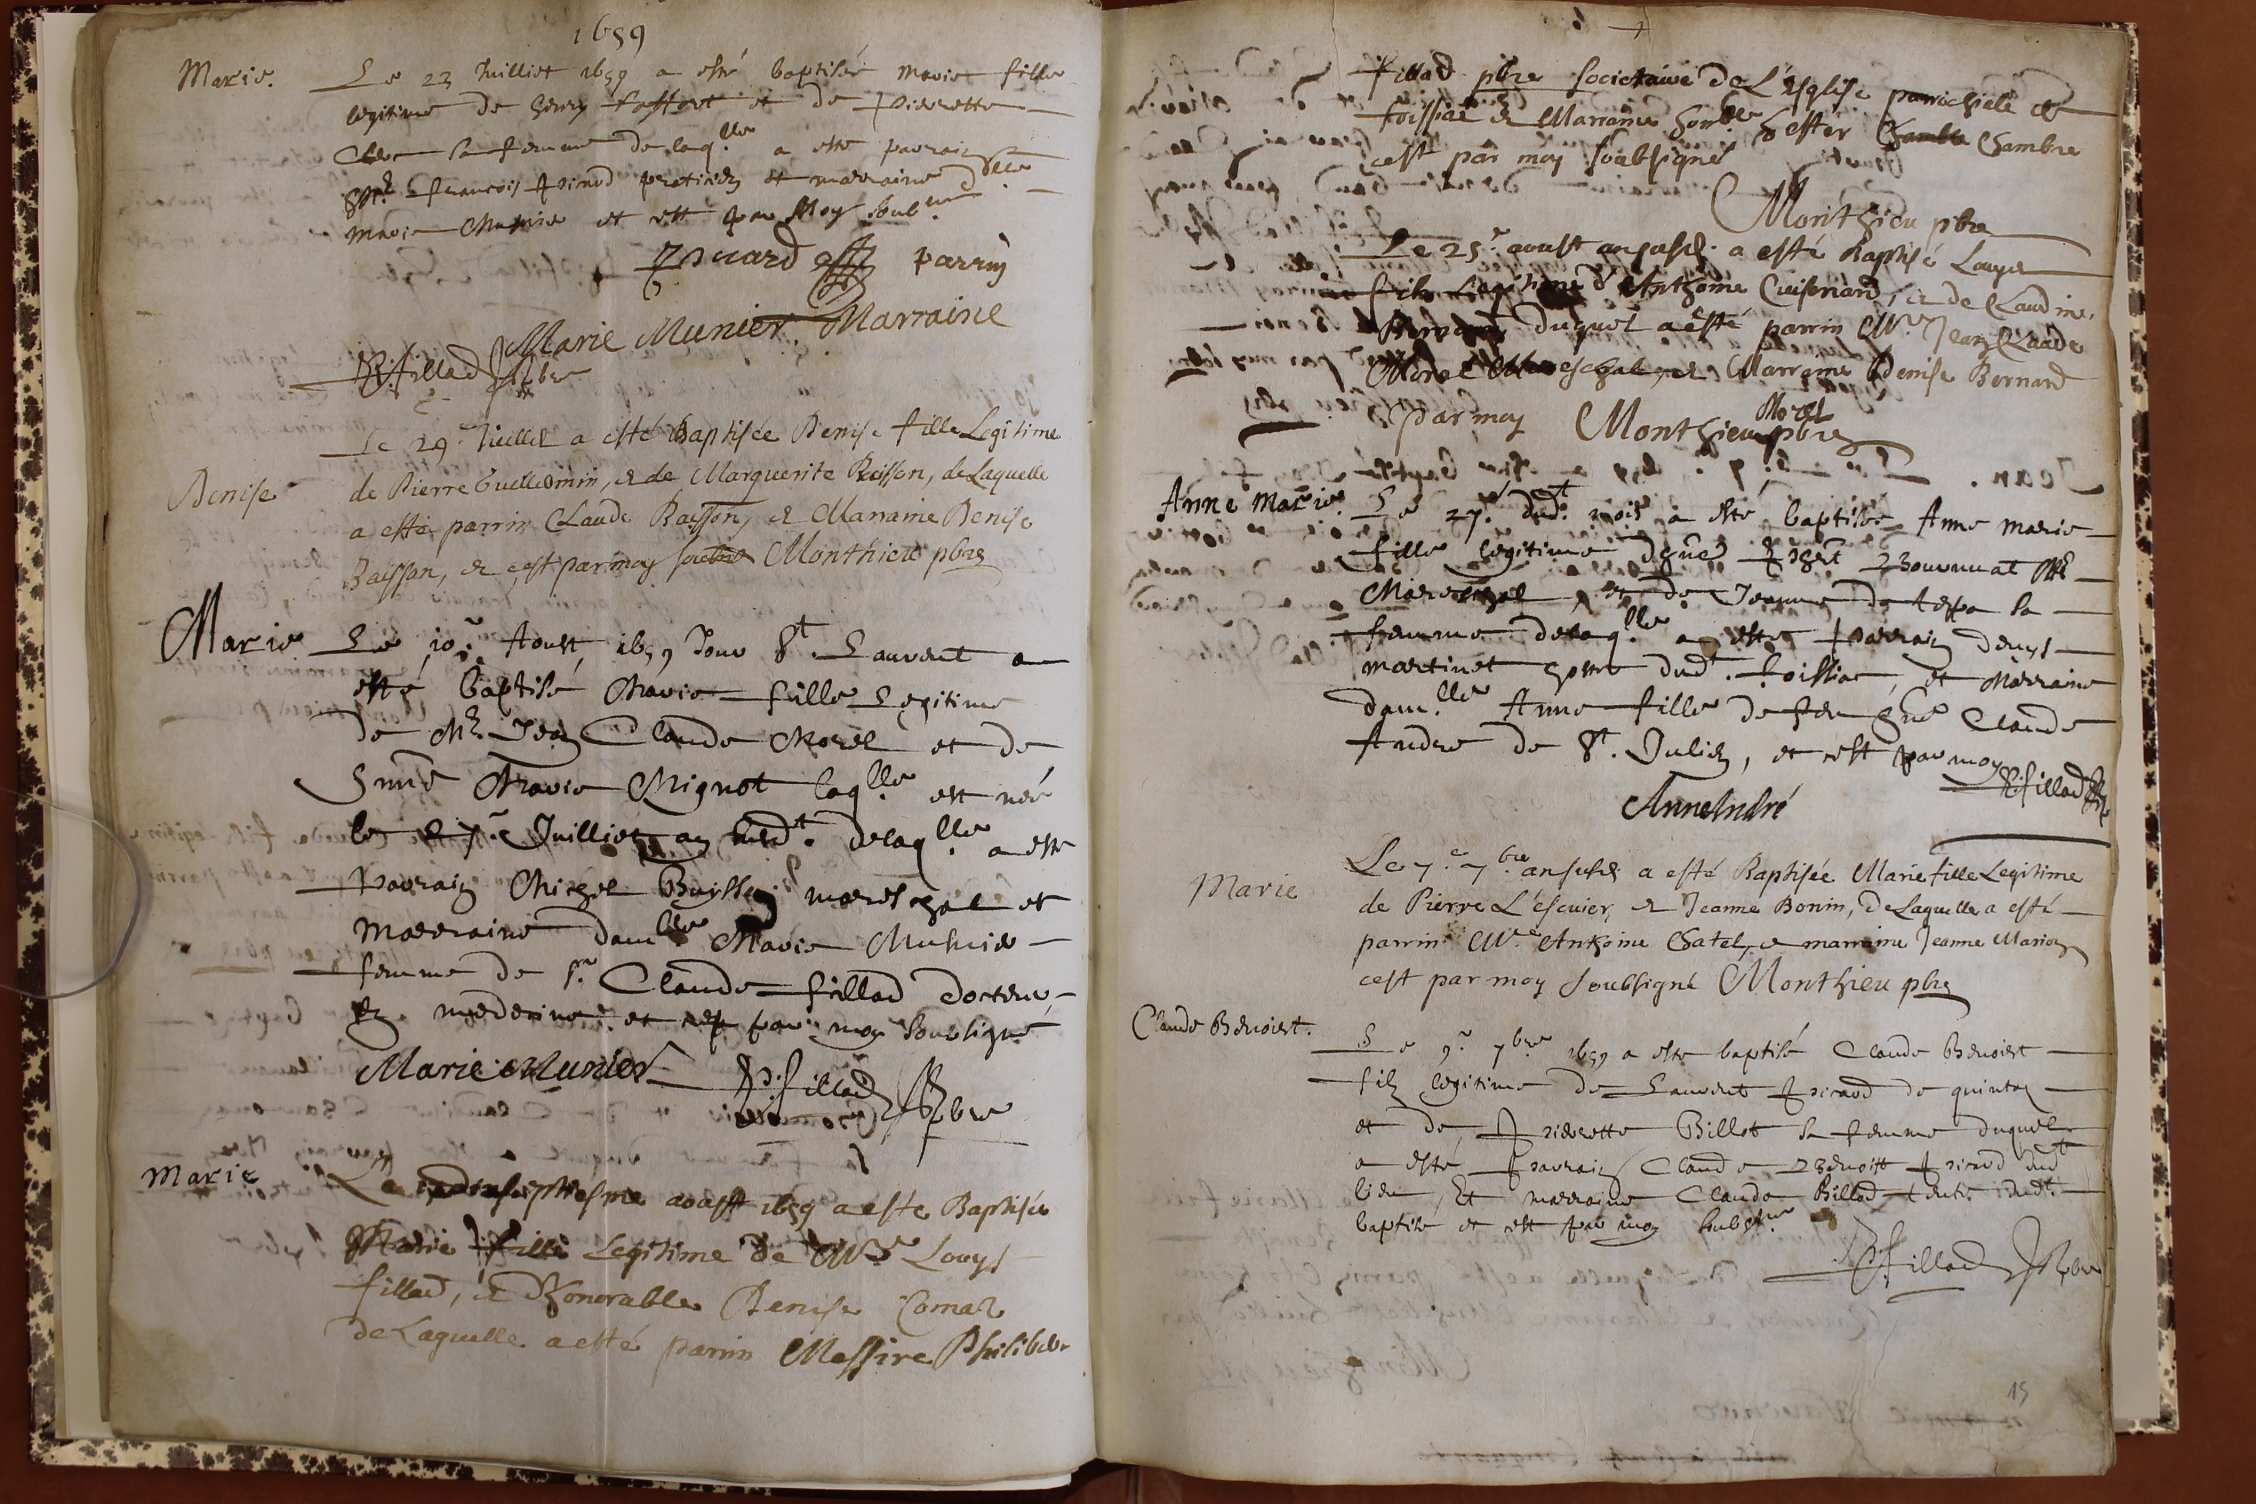 1659
Marie.
Le 23 Juilliet 1659 a esté baptisée Marie fille
legitime de henry et de Pierrette
Clerc sa femme de laq.lle a este parrain
François Picard praticien et marraine d.lle
Marie Munier et est par Moy soub.né
Picard parrin
Marie Munier Marraine
P. fillod Pbre
Denise
Le 29.e Jueillet a esté Baptisée Denise fille Legitime
de Pierre Guillemin, et de Marguerite Buisson, de Laquelle
a esté parrin Claude Buisson, et Marraine Denise
Buisson, et c'est par moy Monthieu pbre
Marie
Le 10.e Aoust 1659 Jour St. Laurent a
esté baptisé Marie fille Legitime
de Mr. Jean Claude Morel et de
Marie Mignot laq.lle est née
le 27.e Juilliet an susd.t delaq.lle a esté
Parrain Michel Buisson mareschal et
Marraine dam.lle Marie Munier
femme de Sr. Claude fillod docteur
en medecine et est par moy soubsigné
Marie Munier P. fillod Pbre
Marie
Le aoust 1659 a esté Baptisée
Marie fille Legitime de Mr.e Louys
fillod, et d'honorable Denise Comaz
de Laquelle a esté parrin Messire Philibert
fillod pbre societaire de L'esglise parrochiele de
foissiac et Marraine hon.ble hester Chambre
cest par moy soubsigné
Monthieu pbre
Le 25.e aoust an susd. a esté Baptisé Louys
fils Legitime d'Anthoine Cuisenard, et de Claudine
Bernard duquel a esté parrin Mr.e Jean Claude
Morel Mareschal, et Marraine Denise Bernard
par moy Monthieu pbre
Morel
Anne Marie.
Le 27.e dud.t mois a esté baptisée Anne Marie
fille legitime
Mareschal, et de Jeanne de sa
femme delaq.lle a esté Parrain denys
martinet dud.t foissiac, et Marraine
dam.lle Anne fille de feu Claude
Andre de St. Julien, et est par moy
P. fillod Pbre
Anne André
Marie
Le 7.e 7.bre an susd. a esté Baptisée Marie fille Legitime
de Pierre L'escuier, et Jeanne Bonin, de Laquelle a esté
parrin Mr.e Anthoine Chatel, et marraine Jeanne Marion
cest par moy soubsigné Monthieu pbre
Claude Benoist.
Le 9.e 7.bre 1659 a este baptisé Claude Benoist
filz legitime de Laurent Picard de quintin
et de Pierrette Billot sa femme duquel
a esté Parrain Claude Benoist Picard dud.t
lieu, Et marraine Claude Billod tente dud.t
baptisé et est par moy soubs.né
P. fillod Pbre
15